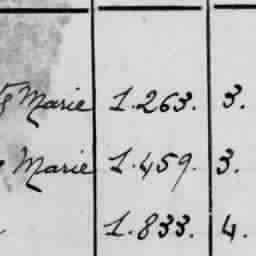 Marie 1.263. 3.
Marie 1.459. 3.
1.833. 4.